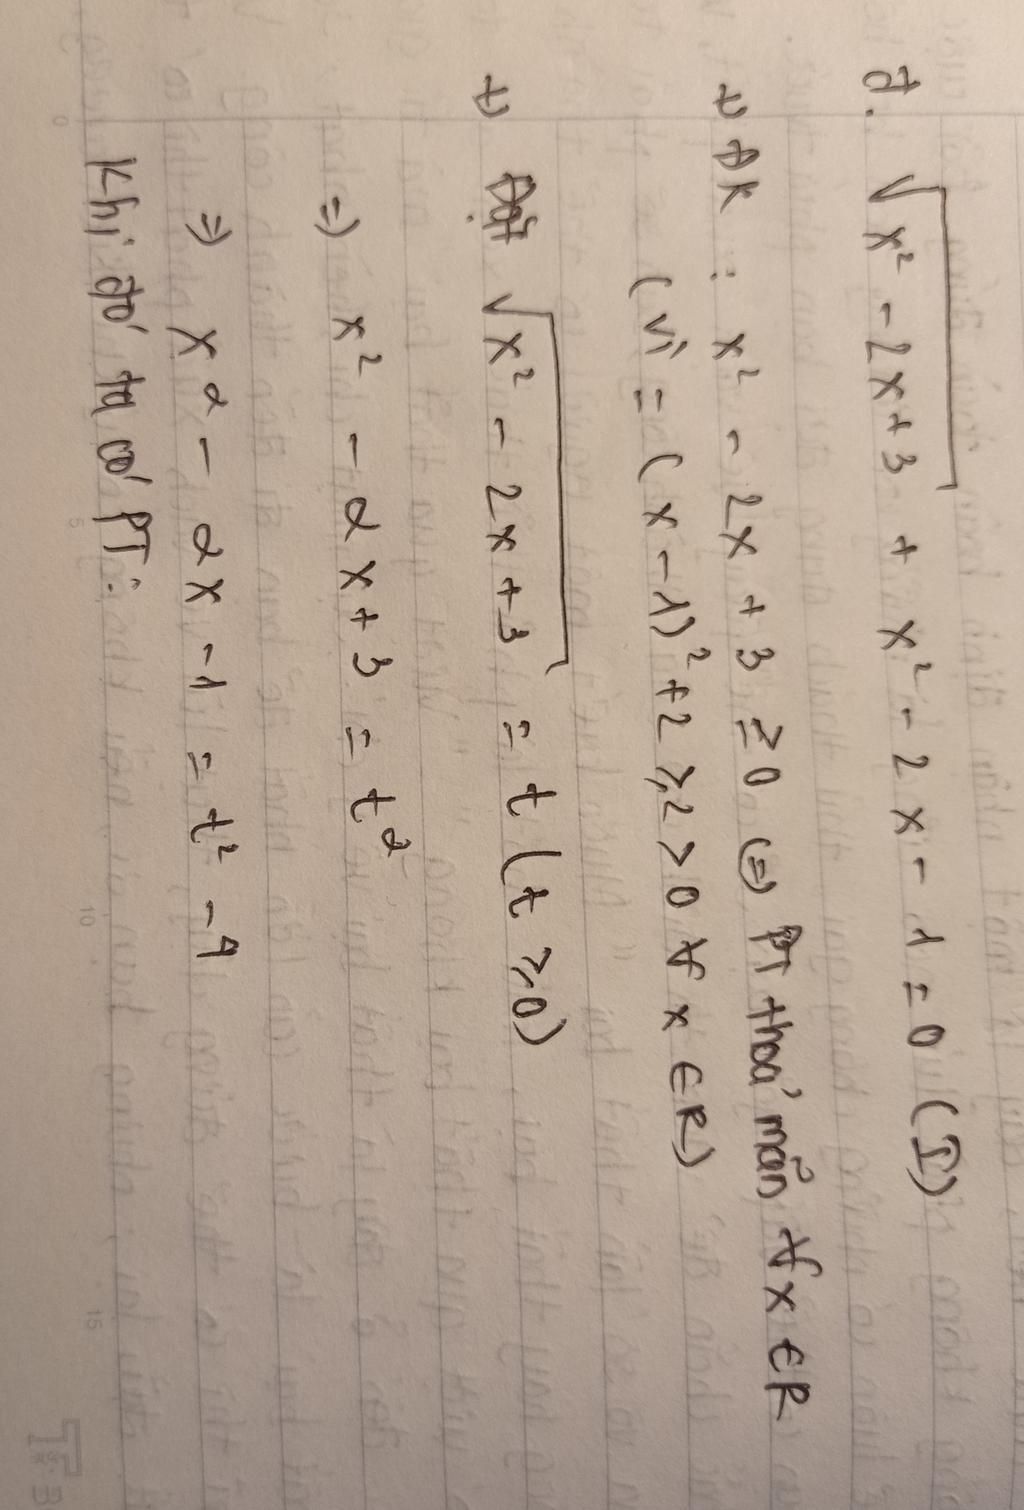 đ. √x² - 2x + 3 + x² - 2x - 1 = 0 (I)
+) ĐK : x² - 2x + 3 ≥ 0 (=) PT thoả mãn ∀x ∈ R
(vì = (x - 1)² + 2 ≥ 2 > 0 ∀ x ∈ R)
+) Đặt √x² - 2x + 3 = t (t ≥ 0)
=) x² - 2x + 3 = t²
=) x² - 2x - 1 = t² - 4
Khi đó ta có PT:
0
5
10
15